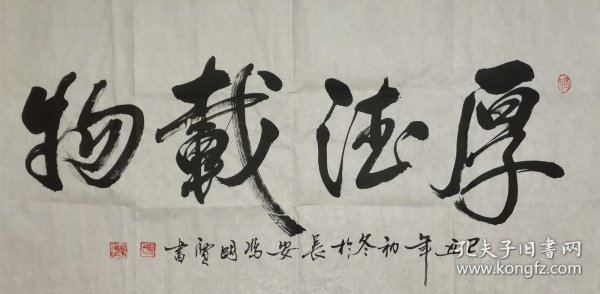 厚德載物
己丑年初冬於長安馮明寶書
孔夫子旧书网
www.kongfz.com